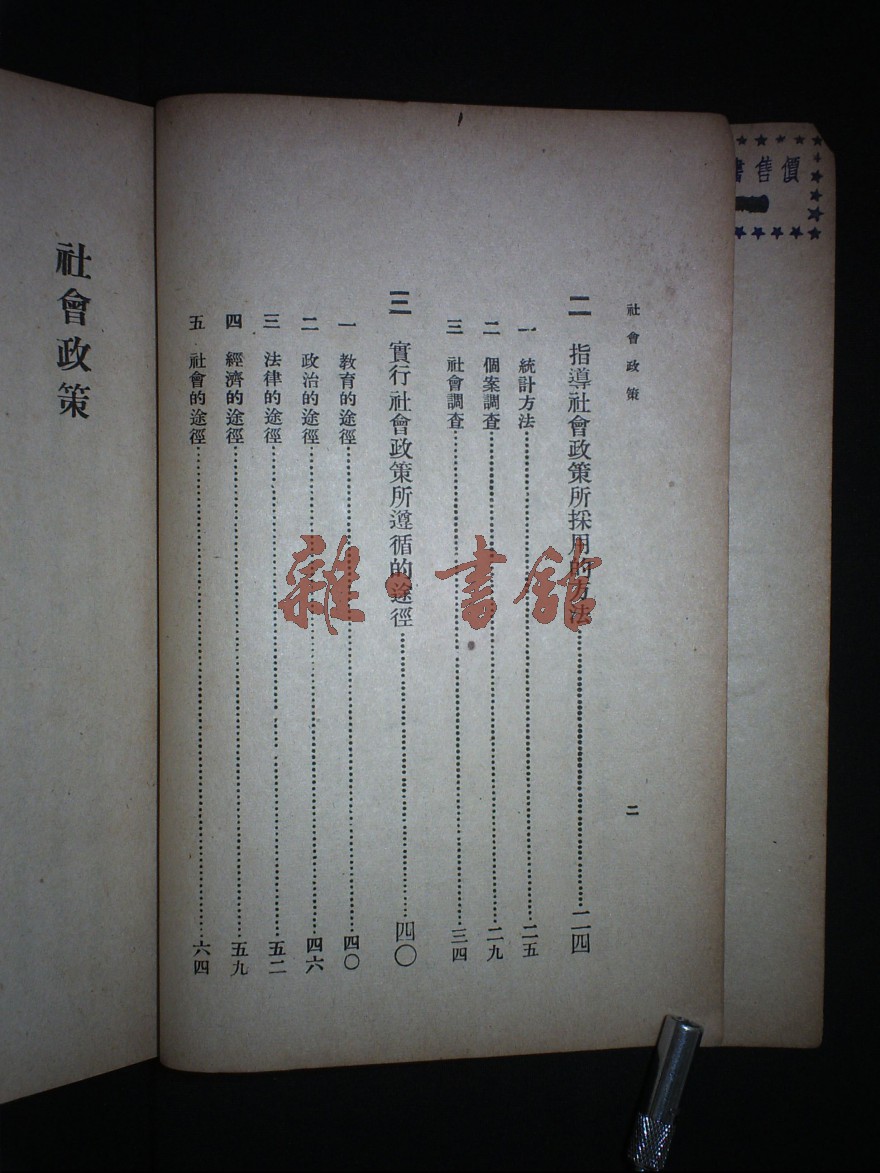 社會政策
二
二 指導社會政策所採用的方法……二四
一 統計方法……二五
二 個案調查……二九
三 社會調查……三四
三 實行社會政策所遵循的途徑……四〇
一 教育的途徑……四〇
二 政治的途徑……四六
三 法律的途徑……五二
四 經濟的途徑……五九
五 社會的途徑……六四
社會政策
售價
雜·書館